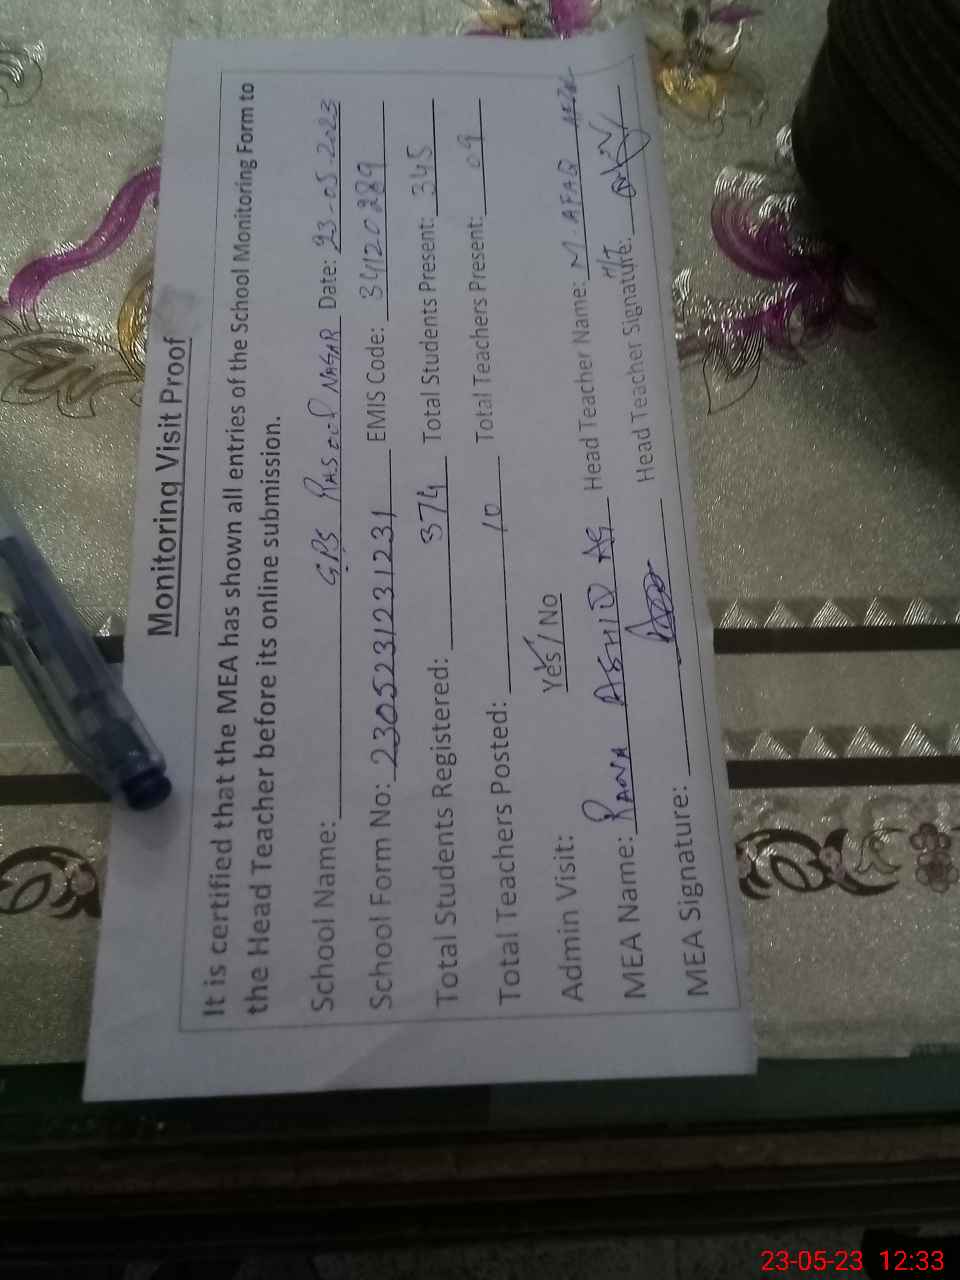 Monitoring Visit Proof
It is certified that the MEA has shown all entries of the School Monitoring Form to
the Head Teacher before its online submission.
School Name: GPS RASOOL NAGAR Date: 23-05-2023
School Form No: 2305231231231 EMIS Code: 34120289
Total Students Registered: 374 Total Students Present: 345
Total Teachers Posted: 10 Total Teachers Present: 09
Admin Visit: Yes / No
MEA Name: RANA Head Teacher Name: M. AFAQ
MEA Signature: Head Teacher Signature:
23-05-23 12:33